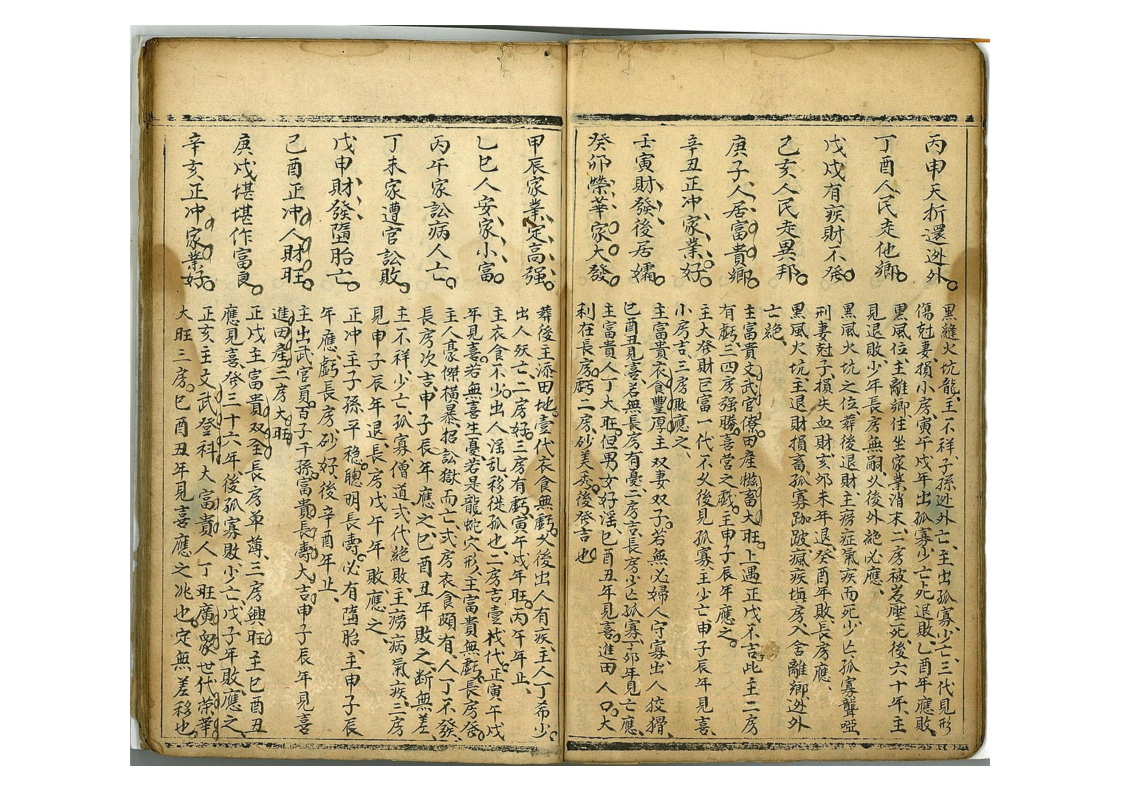 丙申夭折還迯外
丁酉人民走他鄉
戊戌有疾財不發
己亥人民走異邦
庚子人居富貴鄉
辛丑正冲家業好
壬寅財發後居孀
癸卯榮華家大發
黑縫火坑龍主不祥子孫迯外亡主出孤寡少亡三代見形
傷尅妻損小房寅午戌年出孤寡少亡死退敗乙酉年應敗
黑風位主離鄉住坐家業消末二房被岌壓死後六十年主
見退敗少年長房無嗣久後外絕必應
黑風火坑之位葬後退財主痨症氣疾而死少亡孤寡聾啞
刑妻尅子損失血財亥卯未年退癸酉年敗長房應
黑風火坑主退財損畜孤寡跏跛瘋疾填房入舍離鄉迯外
亡絕
主富貴文武官僚田產牲畜大旺卜遇正戊不吉此主二房
有虧三四房强勝喜當之戲主申子辰年應之
主大發財巨富一代不久後見孤寡主少亡申子辰年見喜
小房吉三房敗應之
主富貴衣食豐厚主双妻双子若無必婦人守寡出人狡猾
巳酉丑見喜若無長房有憂二房吉長房少亡孤寡丁卯年見亡應
主富貴人丁大旺但男女好淫巳酉丑年見喜進田人口大
利在長房虧二房砂美秀後發吉也
甲辰家業定高强
乙巳人安家小富
丙午家訟病人亡
丁未家遭官訟敗
戊申財發墮胎亡
己酉正冲人財旺
庚戌堪堪作富良
辛亥正冲家業好
葬後主添田地壹代衣食無虧久後出人有疾主人丁希少
出人殀亡二房好三房有虧寅午戌年旺丙午年止
主衣食不少出人淫乱移徙孤也二房吉壹代代正寅午戌
年見喜若無喜生憂若是龍蛇穴形主富貴無虧長房發
主人豪傑橫暴招訟獄而亡弍房衣食頗有人丁不發
長房次吉申子辰年應之巳酉丑年敗之断無差
主不祥少亡孤寡僧道弍代絕敗主痨病氣疾三房
見申子辰年退長房戊午年敗應之
正冲主子孫平穩聰明長壽必有墮胎主申子辰
年應虧長房砂好後辛酉年止
主出武官員百子千孫富貴長壽大吉申子辰年見喜
進田產三房大旺
正戊主富貴双全長房单薄三房興旺主巳酉丑
應見喜發三十六年後孤寡敗少亡戊子年敗應之
正亥主文武登科大富貴人丁旺廣眾世代榮華
大旺三房巳酉丑年見喜應之兆也定無差移也